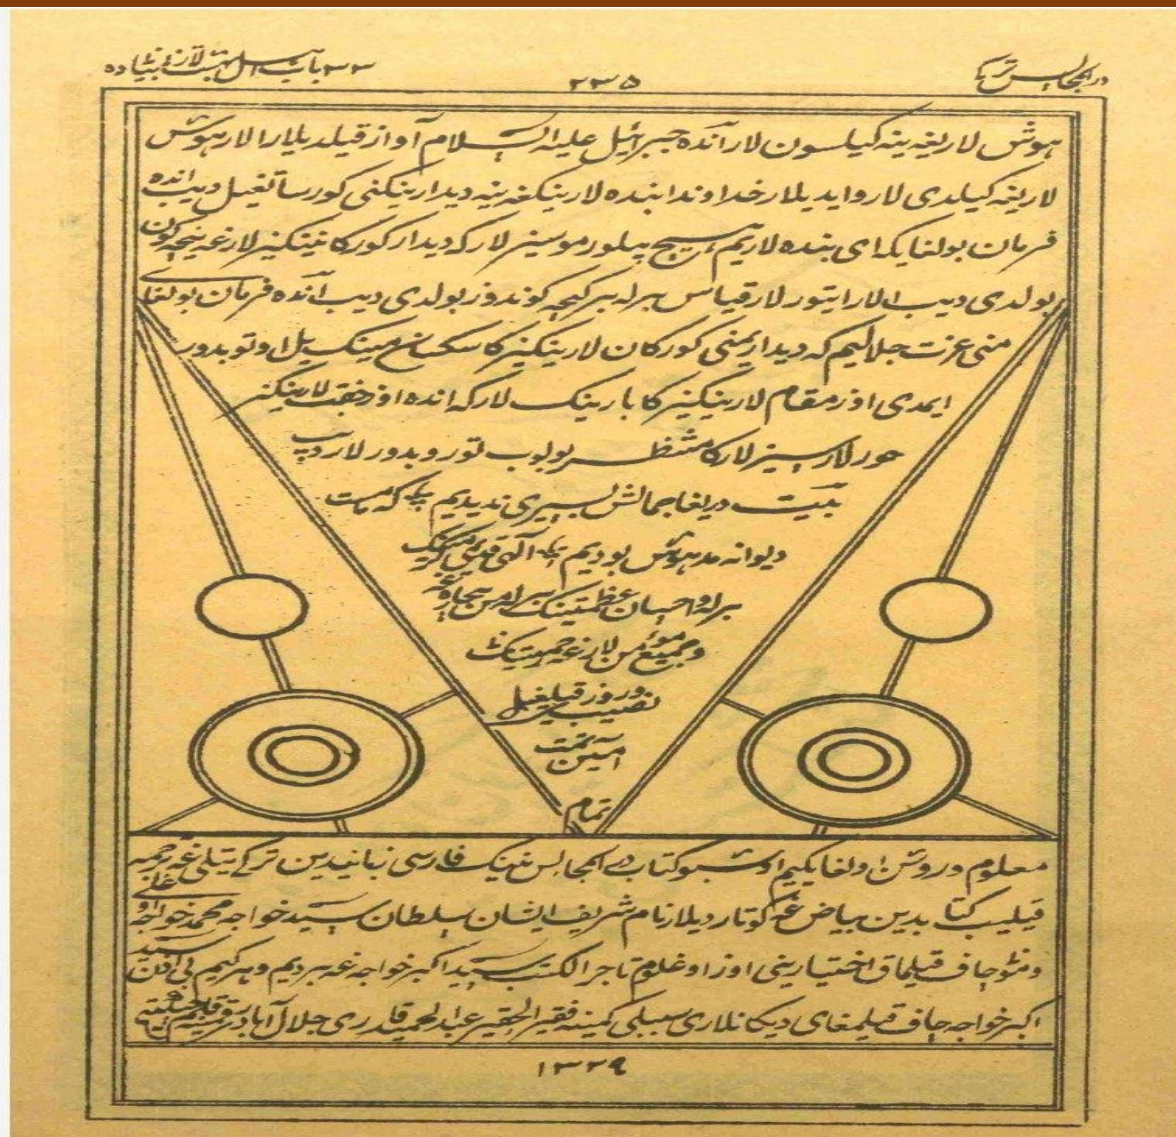 در المجالس ترکی
۲۳۵
۳۳ باب اهل بهشت لارنی بیانیده
هوش لاریغه ینه کیلسون لار آنده جبرائیل علیه السلام آواز قیلدیلار الار هوش
لاریغه کیلدی لار و ایدیلار خداوندا بنده لارینکغه ینه دیدارینکنی کورساتغیل دیب انده
فرمان بولغایکه ای بنده لاریم هیچ بیلورموسیزلار که دیدار کورکانینکیزلارغه نیچه کون
بولدی دیب الار ایتورلار قیاس برله بر کیچه کوندوز بولدی دیب آنده فرمان بولغای
منی عزت جلالیم که دیداریمنی کورکان لارینکیزکا سکسان مینک ییل اوتوبدور
ایمدی اوز مقام لارینکیزکا بارینک لار که انده اوز جفت لارینکیز
حورلار سیزلارکا منتظر بولوب توروبدورلار دیب
بیت دریغا جمالش بسیری ندیدیم که مست
دیوانه مدهوش بودیم الهی قدیمی
برله و احسان عظمتینک برله من بیچاره غه
و جمیع مؤمن لارغه
نصیب و روزی قیلغیل
آمین تمت
تمام
معلوم و روشن اولغایکیم اوشبو کتاب در المجالس نینک فارسی زبانیدین ترکی تیلی غه ترجمه
قیلیب کتابدین بیاض غه کوتاردیلار نام شریف ایشان سلطان سید خواجه محمد خواجه
و منو چاف قیلماق اختیارینی اوز اوغلوم تاجر الکتب سید اکبر خواجه غه بردیم و هر کیم بی اذن سید
اکبر خواجه چاف قیلمغای دیکانلاری سببلی کمینه فقیر الحقیر عبدالحمید قادری جلال آبادی
۱۳۲۹